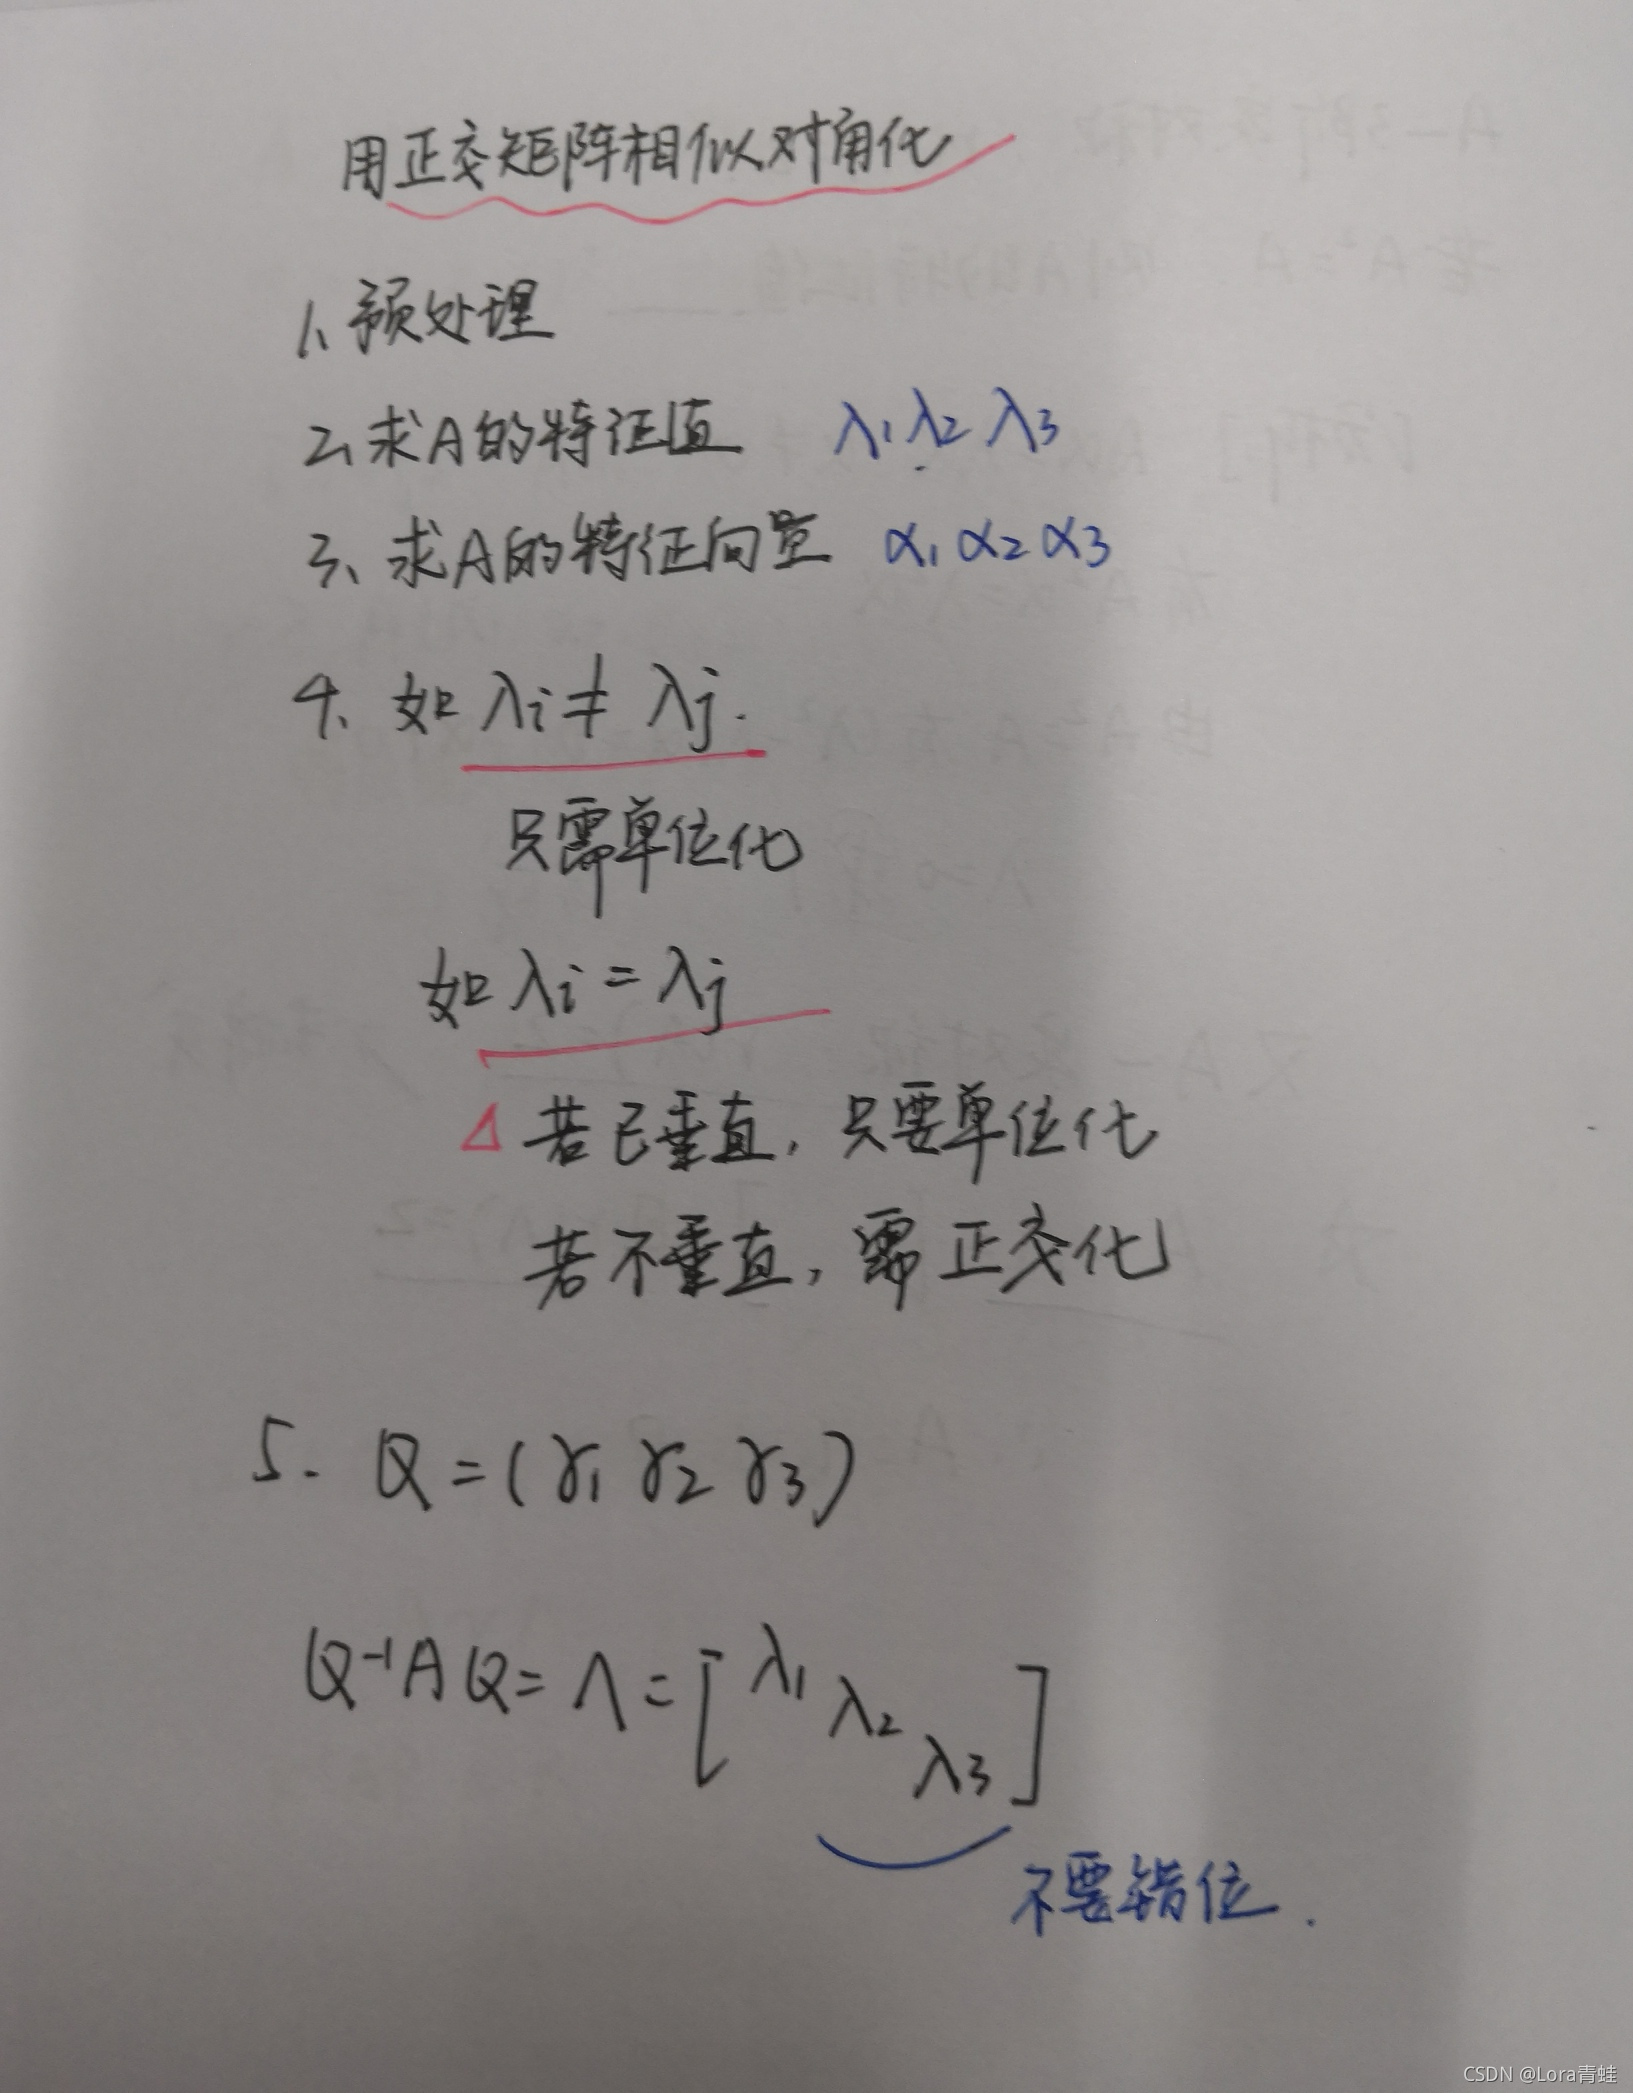 用正交矩阵相似对角化
1、预处理
2、求A的特征值 λ1 λ2 λ3
3、求A的特征向量 α1 α2 α3
4、如 λi ≠ λj.
只需单位化
如 λi = λj
△ 若已垂直，只要单位化
若不垂直，需正交化
5. Q = (γ1 γ2 γ3)
Q⁻¹AQ = Λ = [λ1 λ2 λ3]
不要错位.
CSDN @Lora青蛙